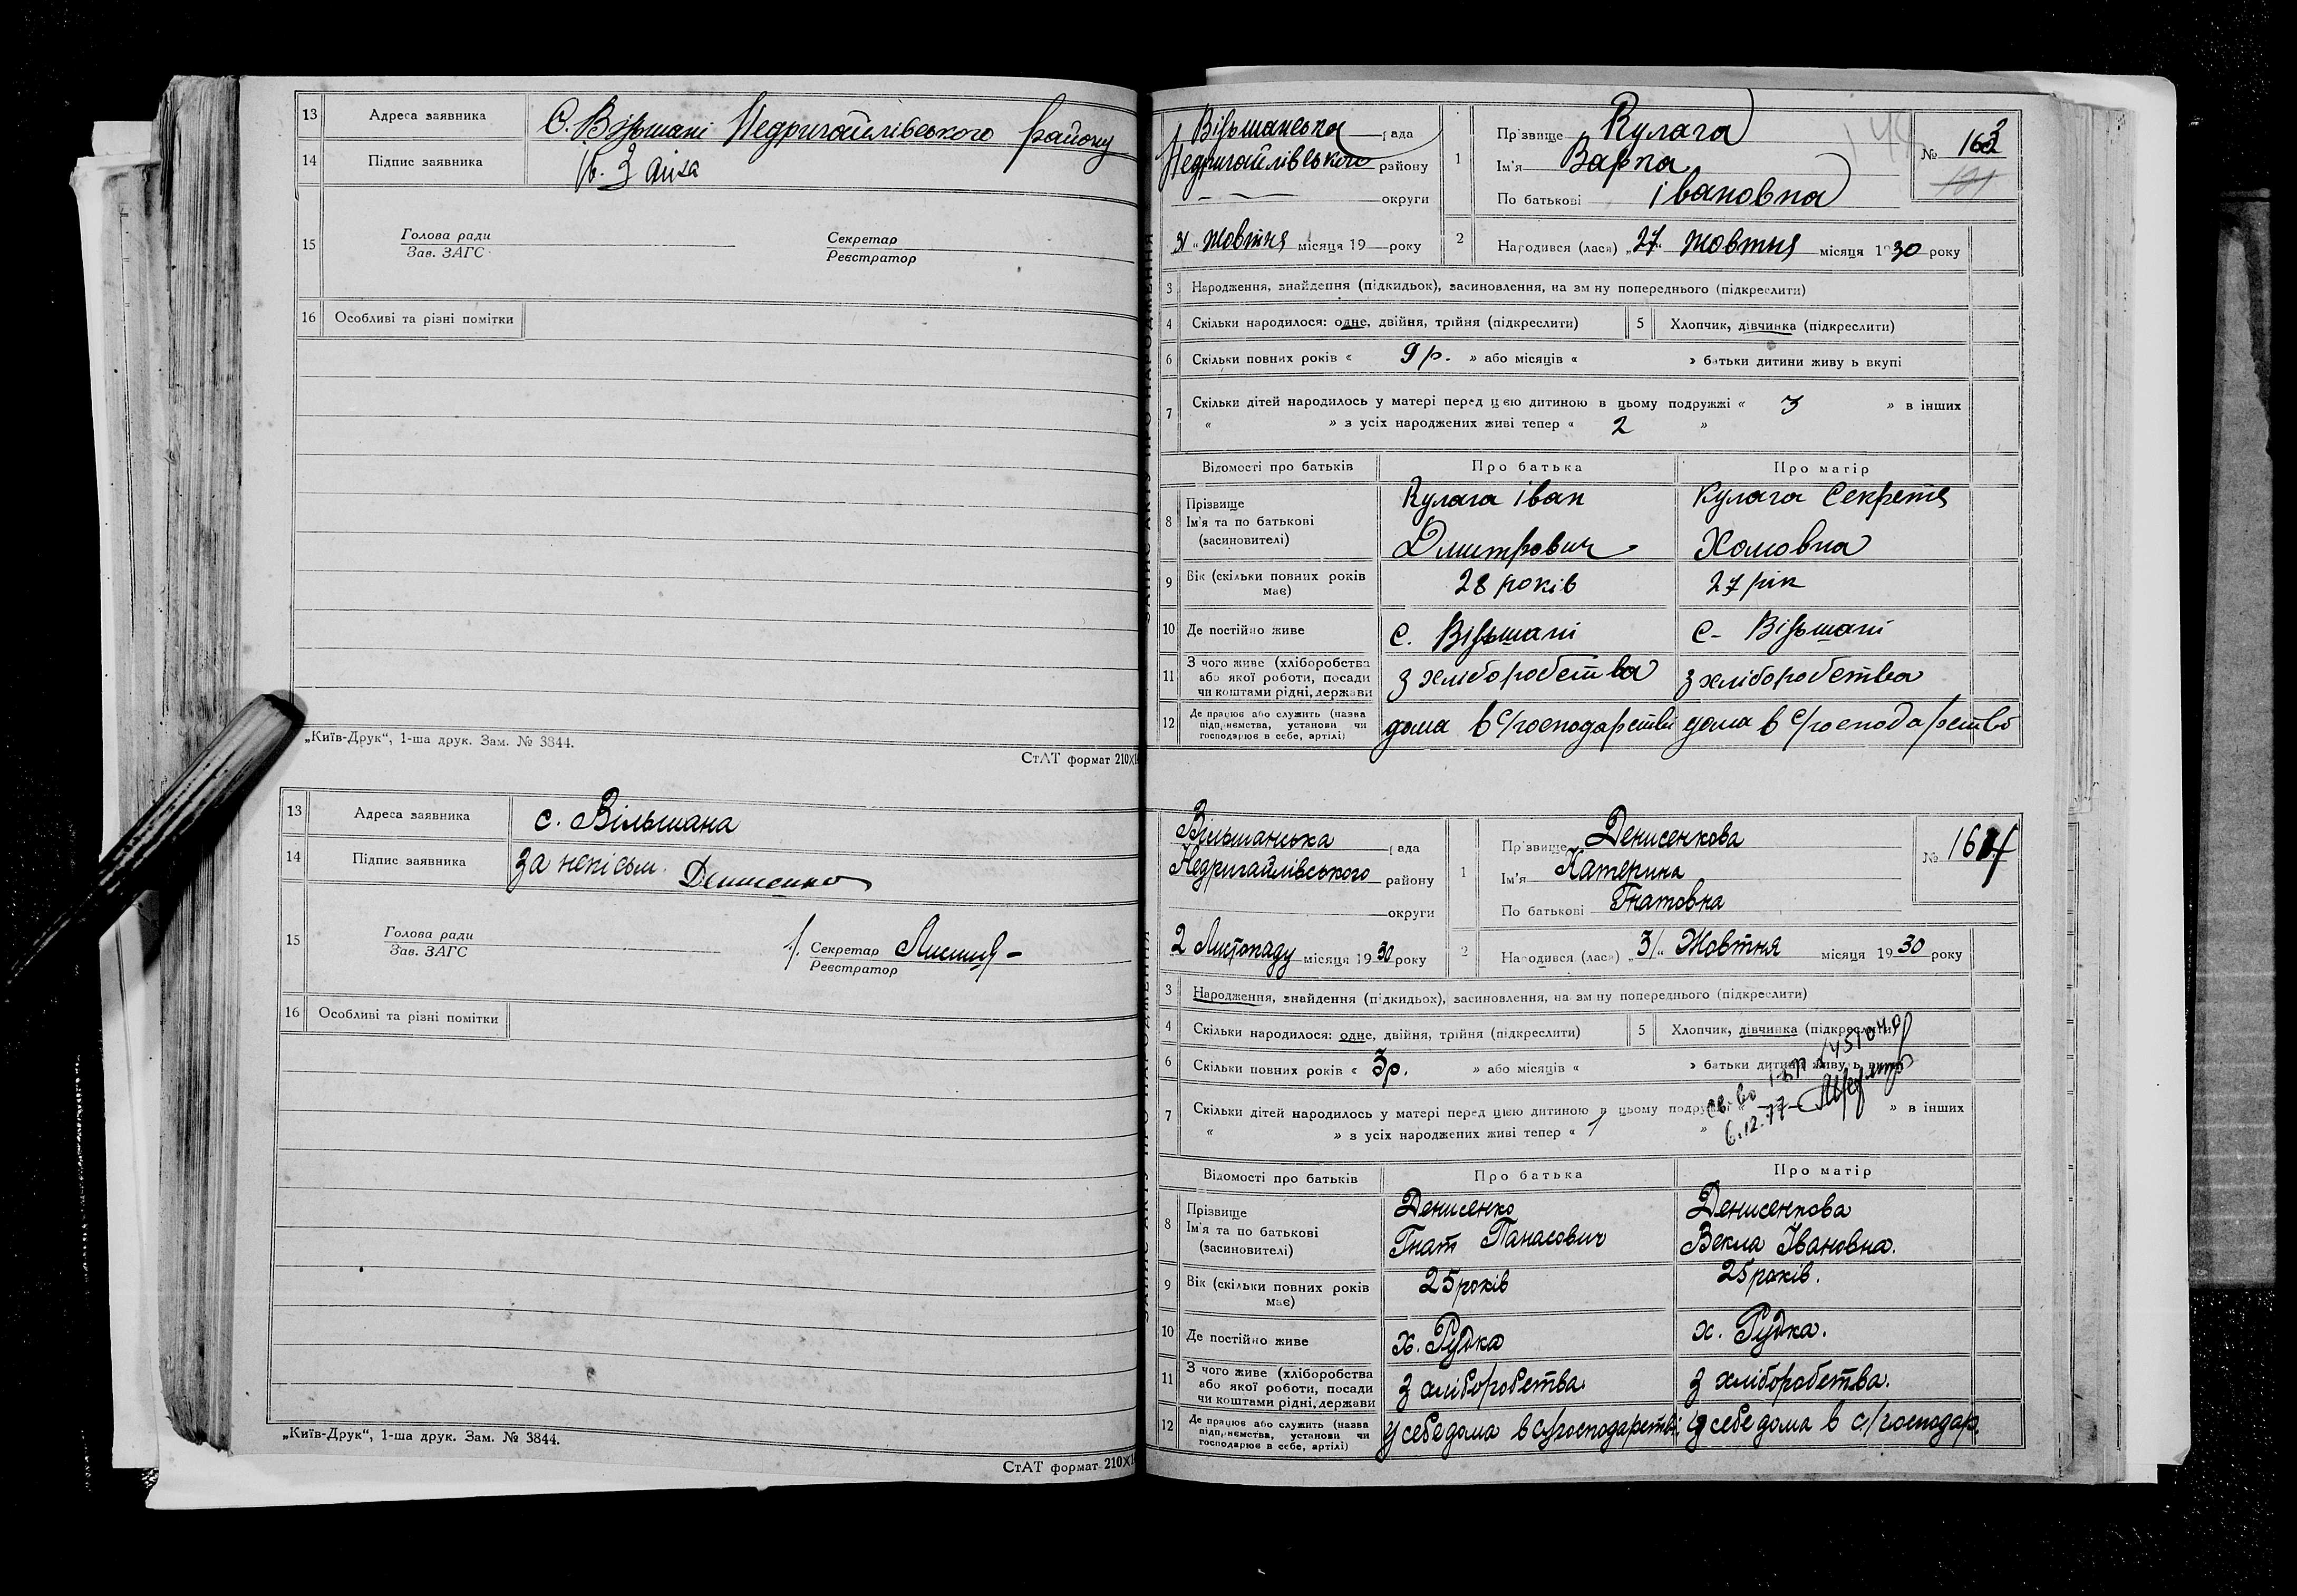 13 Адреса заявника С. Вільшані Недригайлівського району
14 Підпис заявника
15 Голова ради Секретар
Зав. ЗАГС Реєстратор
16 Особливі та різні помітки
„Київ-Друк“, 1-ша друк. Зам. № 3844.
СтАТ формат 210×1
13 Адреса заявника с. Вільшана
14 Підпис заявника за непісьм. Денисенко
15 Голова ради Секретар
Зав. ЗАГС Реєстратор
16 Особливі та різні помітки
„Київ-Друк“, 1-ша друк. Зам. № 3844.
СтАТ формат 210×1
Вільшанська рада
Недригайлівського району
округи
31 „ Жовтня місяця 19 року
1 Прізвище Кулага
Ім'я Варка
По батькові Івановна
№ 163
2 Народився (лася) „27“ Жовтня місяця 1930 року
3 Народження, знайдення (підкидьок), засиновлення, на зміну попереднього (підкреслити)
4 Скільки народилося: одне, двійня, трійня (підкреслити) 5 Хлопчик, дівчинка (підкреслити)
6 Скільки повних років « 9 р. » або місяців « » батьки дитини живуть вкупі
7 Скільки дітей народилось у матері перед цією дитиною в цьому подружжі « 3 » в інших
« » з усіх народжених живі тепер « 2 »
Відомості про батьків Про батька Про матір
8 Прізвище Кулага Іван Кулага Секретя
Ім'я та по батькові
(засиновителі) Дмитрович Хомовна
9 Вік (скільки повних років має) 28 років 27 рік
10 Де постійно живе с. Вільшані с- Вільшані
11 З чого живе (хліборобства
або якої роботи, посади з хліборобства з хліборобства
чи коштами рідні, держави
12 Де працює або служить (назва
підприємства, установи чи дома в с/господарстві дома в с/господарстві
господарює в себе, артілі)
Вільшанська рада
Недригайлівського району
округи
2 Листопаду місяця 1930 року
1 Прізвище Денисенкова
Ім'я Катерина
По батькові Гнатовна
№ 164
2 Народився (лася) „31“ Жовтня місяця 1930 року
3 Народження, знайдення (підкидьох), засиновлення, на зміну попереднього (підкреслити)
4 Скільки народилося: одне, двійня, трійня (підкреслити) 5 Хлопчик, дівчинка (підкреслити)
6 Скільки повних років « 3р. » або місяців « » батьки дитини живуть вкупі
7 Скільки дітей народилось у матері перед цією дитиною в цьому подружжі » в інших
« » з усіх народжених живі тепер « 1 »
6.12.77
Відомості про батьків Про батька Про матір
8 Прізвище Денисенко Денисенкова
Ім'я та по батькові Гнат Панасович Векла Івановна.
(засиновителі)
9 Вік (скільки повних років має) 25 років 25 років.
10 Де постійно живе х. Рудка х. Рудка.
11 З чого живе (хліборобства
або якої роботи, посади з хліборобства з хліборобства.
чи коштами рідні, держави
12 Де працює або служить (назва
підприємства, установи чи у себе дома в с/господарстві у себе дома в с/господар.
господарює в себе, артілі)